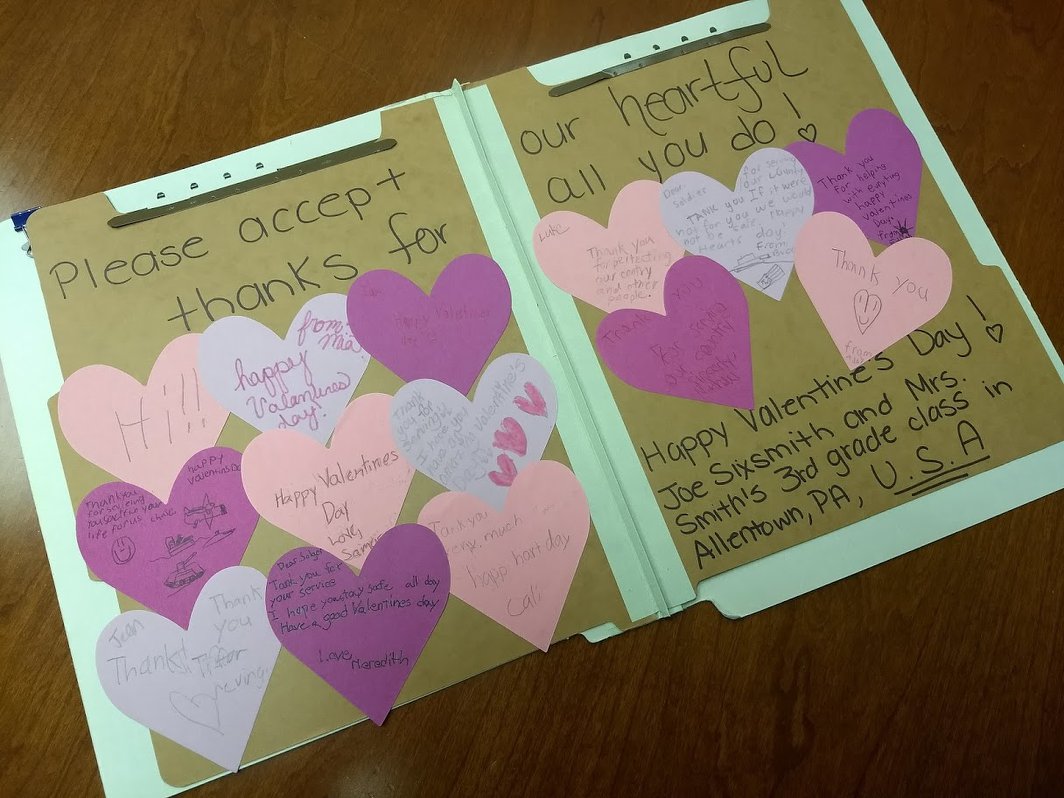 Please accept
thanks for
Hi!!!
from:
Mia
happy
Valantines
day!
happy Valentines
day
Thank you
for serving
I hope you
Valentine's
happy
Valentines Day
Thank you
for serving
your
life for us
Happy Valentines
Day
Love,
Tank you
much
happ hart day
Cali
Jean
Thank
you
for
Thanks!
Tank you for
your service
I hope you stay safe all day
Have a good Valentines day
Love
Meredith
our heartful
all you do!
Luke
Thank you
for pertecting
our contry
and other
people.
Dear
Soldier
for serving
our country
TANK you If it were
not for you we would
not be safe. Happy
Hearts day!
From
Thank you
for helping
with evrything
happy
valentines
Day.
from
Thank you
for serving
our country
Thank you
from
Happy Valentine's Day!
Joe Sixsmith and Mrs.
Smith's 3rd grade class in
Allentown, PA, U.S.A